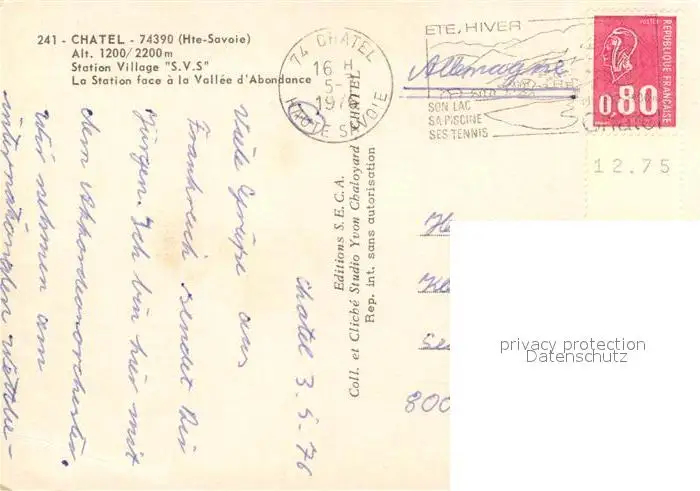 241 - CHATEL - 74390 (Hte-Savoie)
Alt. 1200/2200 m
Station Village "S.V.S"
La Station face à la Vallée d'Abondance
74 CHATEL
16 H
5-5
1976
HAUTE SAVOIE
ETE, HIVER
SON LAC
SA PISCINE
SES TENNIS
Châtel
Allemagne
POSTES
REPUBLIQUE FRANÇAISE
0,80
12.75
Editions S.E.C.A.
Coll. et Cliché Studio Yvon Chaloyard CHATEL
Rep. int. sans autorisation
Chatel 3.5.76
Viele Grüße aus
Frankreich sendet Dir
Jürgen. Ich bin hier mit
dem Akkordeonorchester.
Wir nehmen am
internationalen Wettbe-
800
privacy protection
Datenschutz